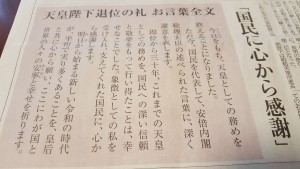 天皇陛下退位の礼 お言葉全文
「国民に心から感謝」
今日をもち、天皇としての務めを
終えることになりました。
ただ今、国民を代表して、安倍内閣
総理大臣の述べられた言葉に、深く
謝意を表します。
即位から三十年、これまでの天皇
としての務めを、国民への深い信頼
と敬愛をもって行い得たことは、幸
せなことでした。象徴としての私を
受け入れ、支えてくれた国民に、心か
ら感謝します。
明日から始まる新しい令和の時代
が、平和で実り多くあることを、皇后
と共に心から願い、ここに我が国と
世界の人々の安寧と幸せを祈ります。